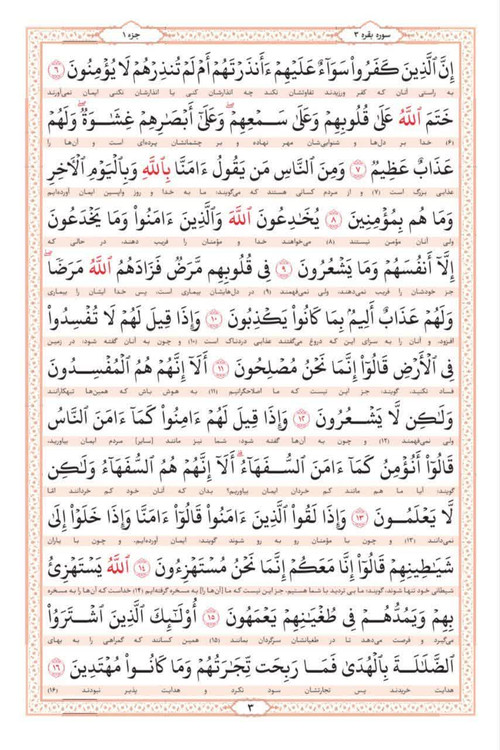 سوره بقره ۲
جزء ۱
إِنَّ ٱلَّذِينَ كَفَرُوا۟ سَوَآءٌ عَلَيْهِمْ ءَأَنذَرْتَهُمْ أَمْ لَمْ تُنذِرْهُمْ لَا يُؤْمِنُونَ ۶
به راستی آنان که کفر ورزیدند تفاوتشان نکند چه اندارشان کنی یا اندارشان نکنی ایمان نمی‌آورند
خَتَمَ ٱللَّهُ عَلَىٰ قُلُوبِهِمْ وَعَلَىٰ سَمْعِهِمْ ۖ وَعَلَىٰٓ أَبْصَٰرِهِمْ غِشَٰوَةٌ ۖ وَلَهُمْ
(۶) خدا بر دل‌ها و شنوایی‌شان مهر نهاده و بر چشمانشان پرده‌ای است و آن‌ها را
عَذَابٌ عَظِيمٌ ۷ وَمِنَ ٱلنَّاسِ مَن يَقُولُ ءَامَنَّا بِٱللَّهِ وَبِٱلْيَوْمِ ٱلْـَٔاخِرِ
عذابی بزرگ است (۷) و از مردم کسانی هستند که می‌گویند: ما به خدا و روز واپسین ایمان آورده‌ایم
وَمَا هُم بِمُؤْمِنِينَ ۸ يُخَٰدِعُونَ ٱللَّهَ وَٱلَّذِينَ ءَامَنُوا۟ وَمَا يَخْدَعُونَ
ولی آنان مؤمن نیستند (۸) می‌خواهند خدا و مؤمنان را فریب دهند، در حالی که
إِلَّآ أَنفُسَهُمْ وَمَا يَشْعُرُونَ ۹ فِى قُلُوبِهِم مَّرَضٌ فَزَادَهُمُ ٱللَّهُ مَرَضًا ۖ
جز خودشان را فریب نمی‌دهند، ولی نمی‌فهمند (۹) در دل‌هایشان بیماری است، پس خدا ایشان را بیماری
وَلَهُمْ عَذَابٌ أَلِيمٌۢ بِمَا كَانُوا۟ يَكْذِبُونَ ۱۰ وَإِذَا قِيلَ لَهُمْ لَا تُفْسِدُوا۟
افزود، و آنان را به سزای این که دروغ می‌گفتند عذابی دردناک است (۱۰) و چون به آنان گفته شود: در زمین
فِى ٱلْأَرْضِ قَالُوٓا۟ إِنَّمَا نَحْنُ مُصْلِحُونَ ۱۱ أَلَآ إِنَّهُمْ هُمُ ٱلْمُفْسِدُونَ
فساد نکنید، گویند: جز این نیست که ما اصلاحگرانیم (۱۱) به هوش باش که همین‌ها تبهکارانند
وَلَٰكِن لَّا يَشْعُرُونَ ۱۲ وَإِذَا قِيلَ لَهُمْ ءَامِنُوا۟ كَمَآ ءَامَنَ ٱلنَّاسُ
ولی نمی‌فهمند (۱۲) و چون به آن‌ها گفته شود: شما نیز مانند [سایر] مردم ایمان بیاورید،
قَالُوٓا۟ أَنُؤْمِنُ كَمَآ ءَامَنَ ٱلسُّفَهَآءُ ۗ أَلَآ إِنَّهُمْ هُمُ ٱلسُّفَهَآءُ وَلَٰكِن
گویند: آیا ما هم مانند کم خردان ایمان بیاوریم؟ بدان که آنان خود کم خردانند اما
لَّا يَعْلَمُونَ ۱۳ وَإِذَا لَقُوا۟ ٱلَّذِينَ ءَامَنُوا۟ قَالُوٓا۟ ءَامَنَّا وَإِذَا خَلَوْا۟ إِلَىٰ
نمی‌دانند (۱۳) و چون با مؤمنان رو به رو شوند گویند: ایمان آورده‌ایم، و چون با یاران
شَيَٰطِينِهِمْ قَالُوٓا۟ إِنَّا مَعَكُمْ إِنَّمَا نَحْنُ مُسْتَهْزِءُونَ ۱۴ ٱللَّهُ يَسْتَهْزِئُ
شیطانی خود تنها شوند، گویند: ما بی تردید با شما هستیم، جز این نیست که ما [آن‌ها را] به مسخره گرفته‌ایم (۱۴) خداست که آن‌ها را به مسخره
بِهِمْ وَيَمُدُّهُمْ فِى طُغْيَٰنِهِمْ يَعْمَهُونَ ۱۵ أُو۟لَٰٓئِكَ ٱلَّذِينَ ٱشْتَرَوُا۟
می‌گیرد و فرصت می‌دهد تا در طغیانشان سرگردان بمانند (۱۵) همین کسانند که گمراهی را به بهای
ٱلضَّلَٰلَةَ بِٱلْهُدَىٰ فَمَا رَبِحَت تِّجَٰرَتُهُمْ وَمَا كَانُوا۟ مُهْتَدِينَ ۱۶
هدایت خریدند پس تجارتشان سود نکرد و هدایت پذیر نبودند (۱۶)
۳